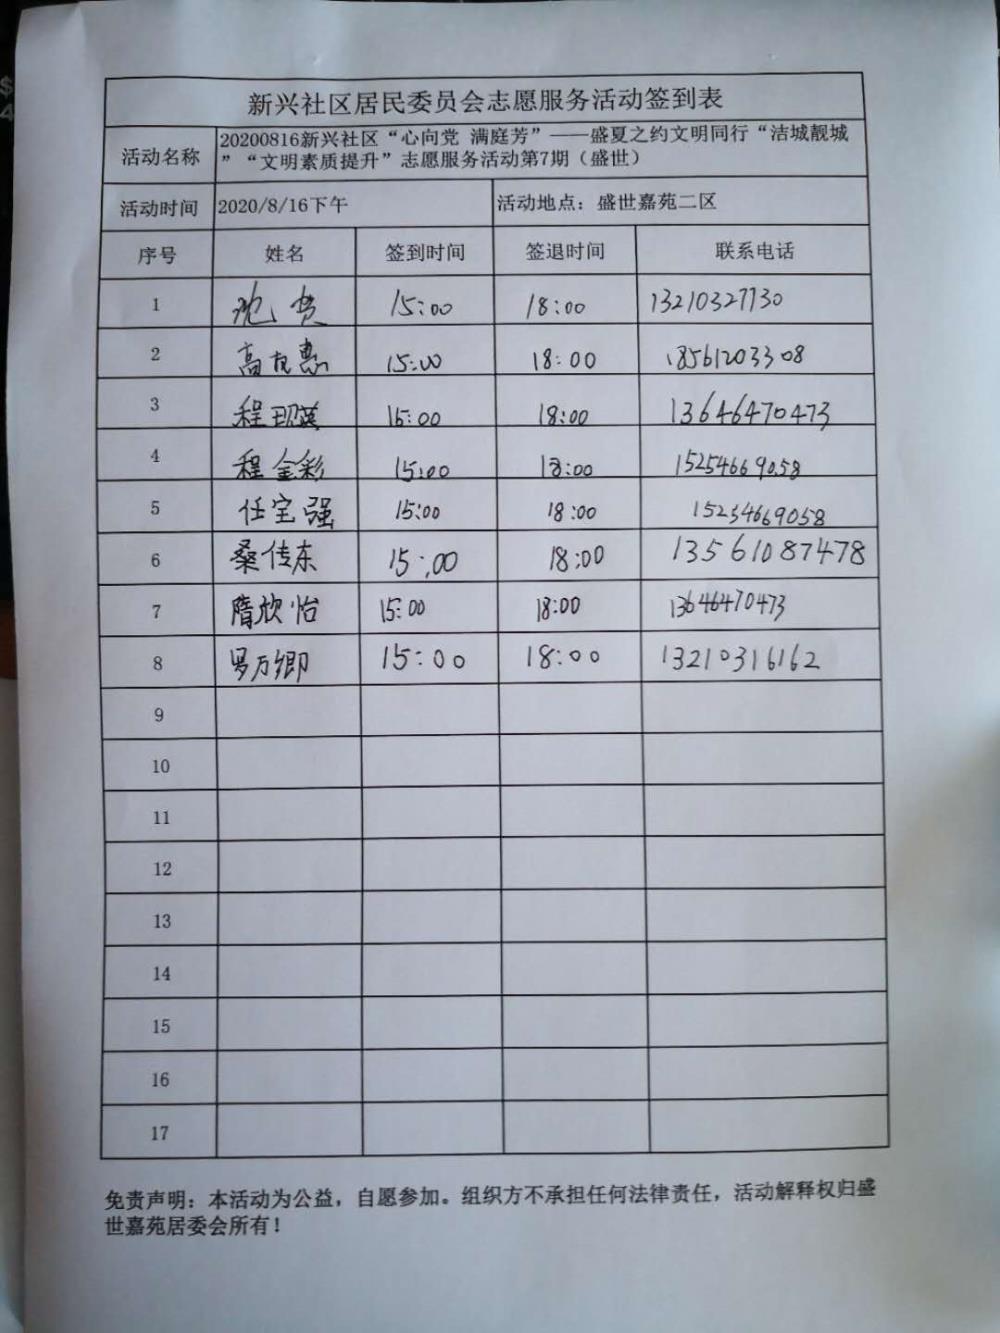 新兴社区居民委员会志愿服务活动签到表
活动名称 20200816新兴社区“心向党 满庭芳”——盛夏之约文明同行“洁城靓城
”“文明素质提升”志愿服务活动第7期（盛世）
活动时间 2020/8/16下午 活动地点：盛世嘉苑二区
序号 姓名 签到时间 签退时间 联系电话
1 15:00 18:00 13210327730
2 高 惠 15:00 18:00 18561203308
3 程 15:00 18:00 13646470473
4 程金彩 15:00 18:00 15254669058
5 任宝强 15:00 18:00 15254669058
6 桑传东 15:00 18:00 13561087478
7 隋欣怡 15:00 18:00 13646470473
8 罗万卿 15:00 18:00 13210316162
9
10
11
12
13
14
15
16
17
免责声明：本活动为公益，自愿参加。组织方不承担任何法律责任，活动解释权归盛
世嘉苑居委会所有！